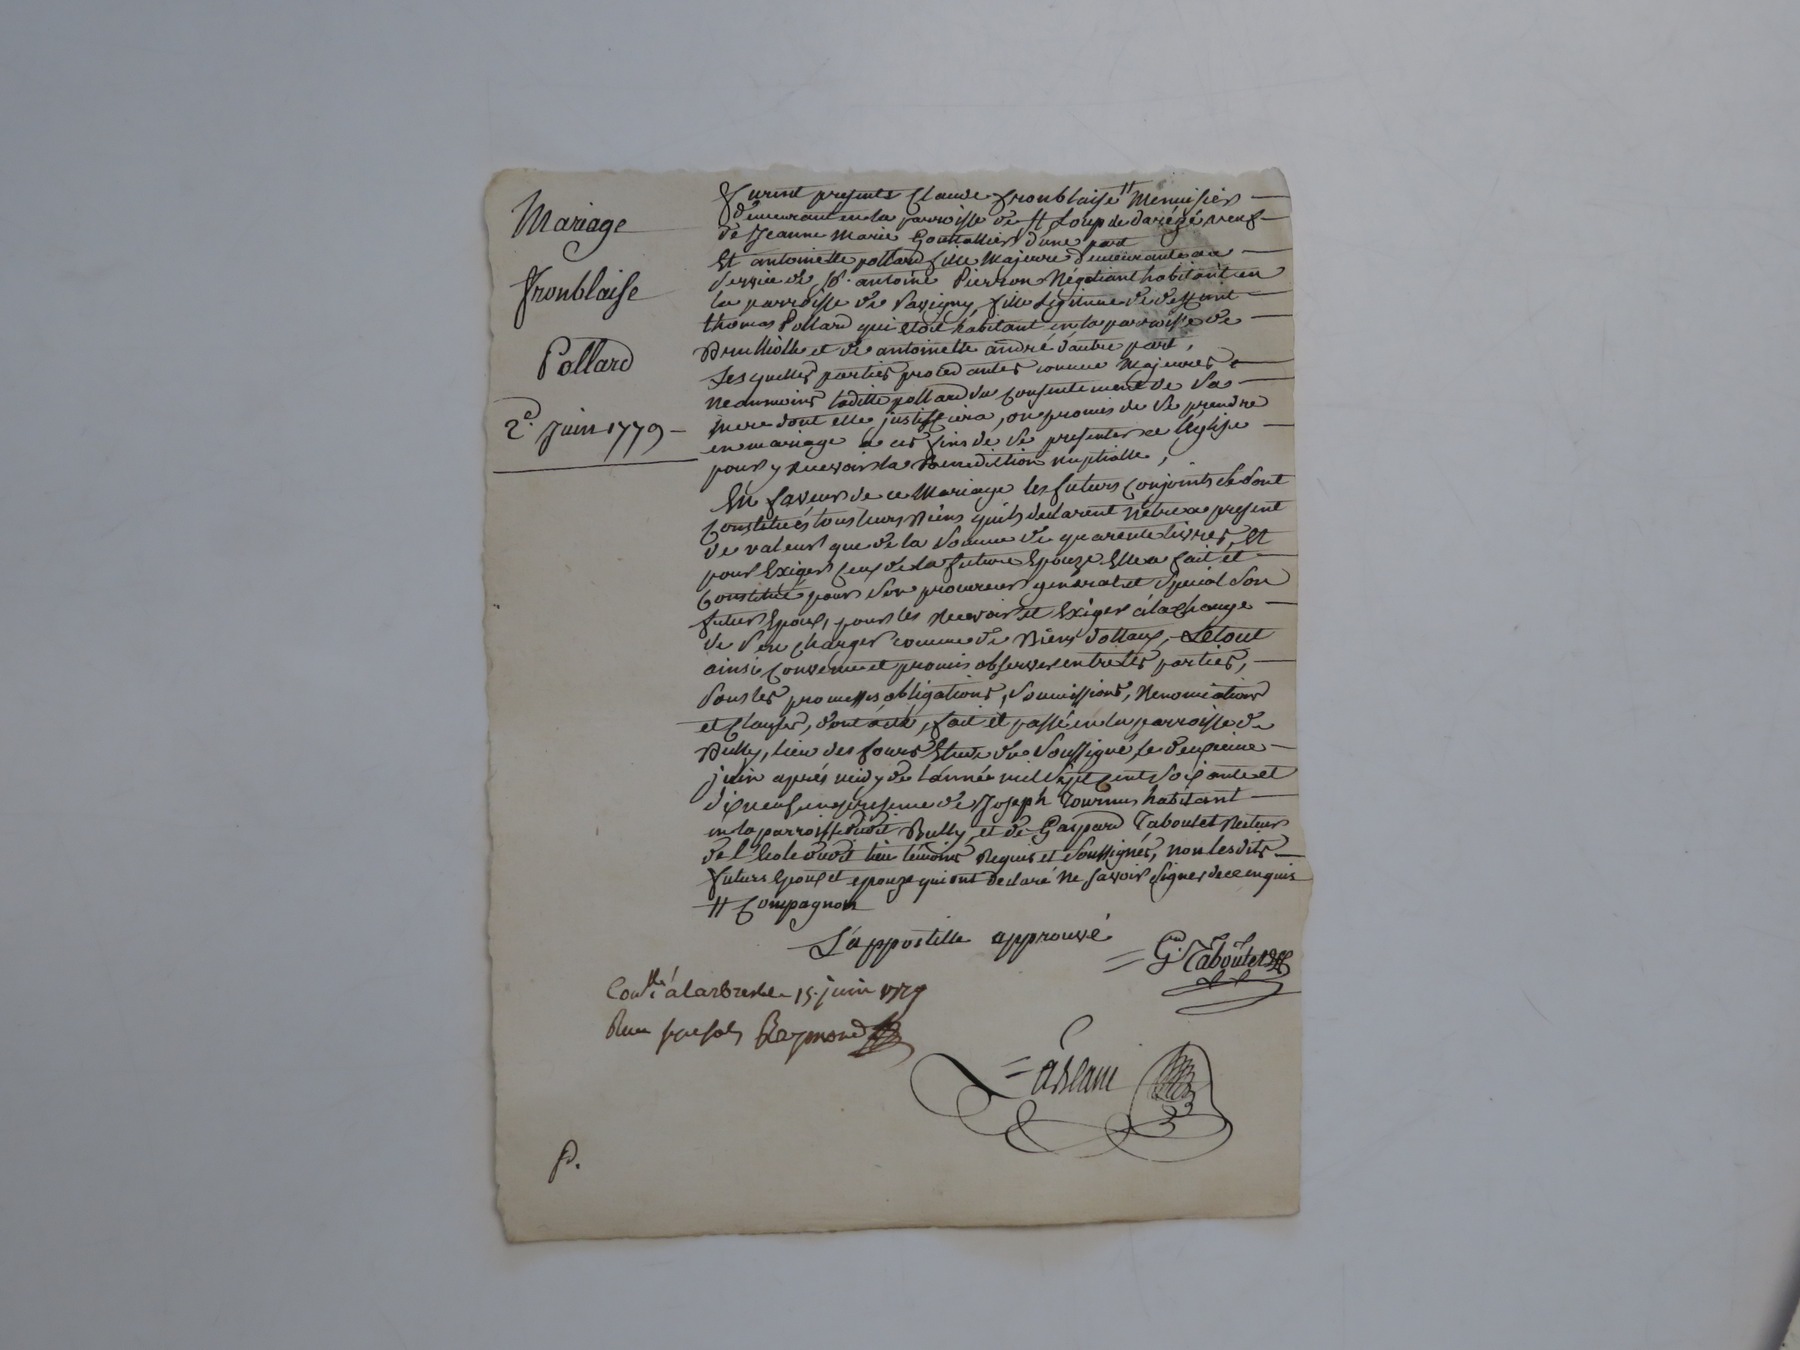 Mariage
Fronblaise
Pollard
2e. Juin 1779
Furent presents Claude Fronblaise # Menuisier
demeurant en la parroisse de St Loup de veuf
de Jeanne Marie Gouttallier d'une part
Et antoinette pollard fille Majeure demeurante au
service de Sr. antoine Pierron Négotiant habitant en
la parroisse de Savigny, fille Légitime de deffunt
thomas Pollard qui étoit habitant en la parroisse de
Brulliolle et de antoinette andré d'autre part,
Les quelles parties procedantes comme Majeures &
Neanmoins laditte pollard du Consentement de sa
mere dont elle justiffiera, on promis de se prendre
en mariage a ces fins de se presenter a l'église
pour y recevoir la Benediction nuptialle,
En faveur de ce Mariage les futurs Conjoints se sont
Constitués tous leurs Biens quils declarent N'être a present
de valeur que de la somme de quarente livres, Et
pour Exiger Ceux de la future Epouze Elle a fait et
Constitué pour son procureur général et spécial son
futur Epoux, pour les recevoir et Exiger à la charge
de s'en charger comme de Biens dottaux, Le tout
ainsi Convenu et promis observer entre les parties,
sous les promesses obligations, soumissions, renonciations
et Clauses, dont acte, fait et passé en la parroisse de
Bully, lieu des fours Etude du soussigné, le deuxieme
juin aprés midy de l'année mil sept cent soixante et
dixneuf en presence de Joseph Tournus habitant
en la parroisse dudit Bully, et de Gaspard Taboutet Recteur
de l'Ecole dudit lieu témoins Requis et soussignés, non lesdits
futurs Epoux et epouze qui ont declaré ne savoir signer de ce enquis
# Compagnon
L'appostille approuvé
G. Taboutet
Conllé à larbresle 15. juin 1779
Reçu Raymond
P.